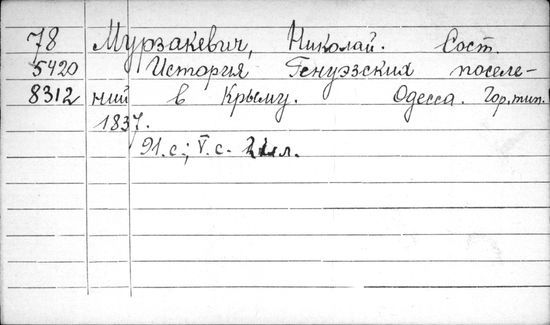 78 Мурзакевич, Николай. Сост.
5420 История Генуэзских поселе-
8312 ний в Крыму. Одесса. Гор. тип.
1837.
91.с.; V.с.